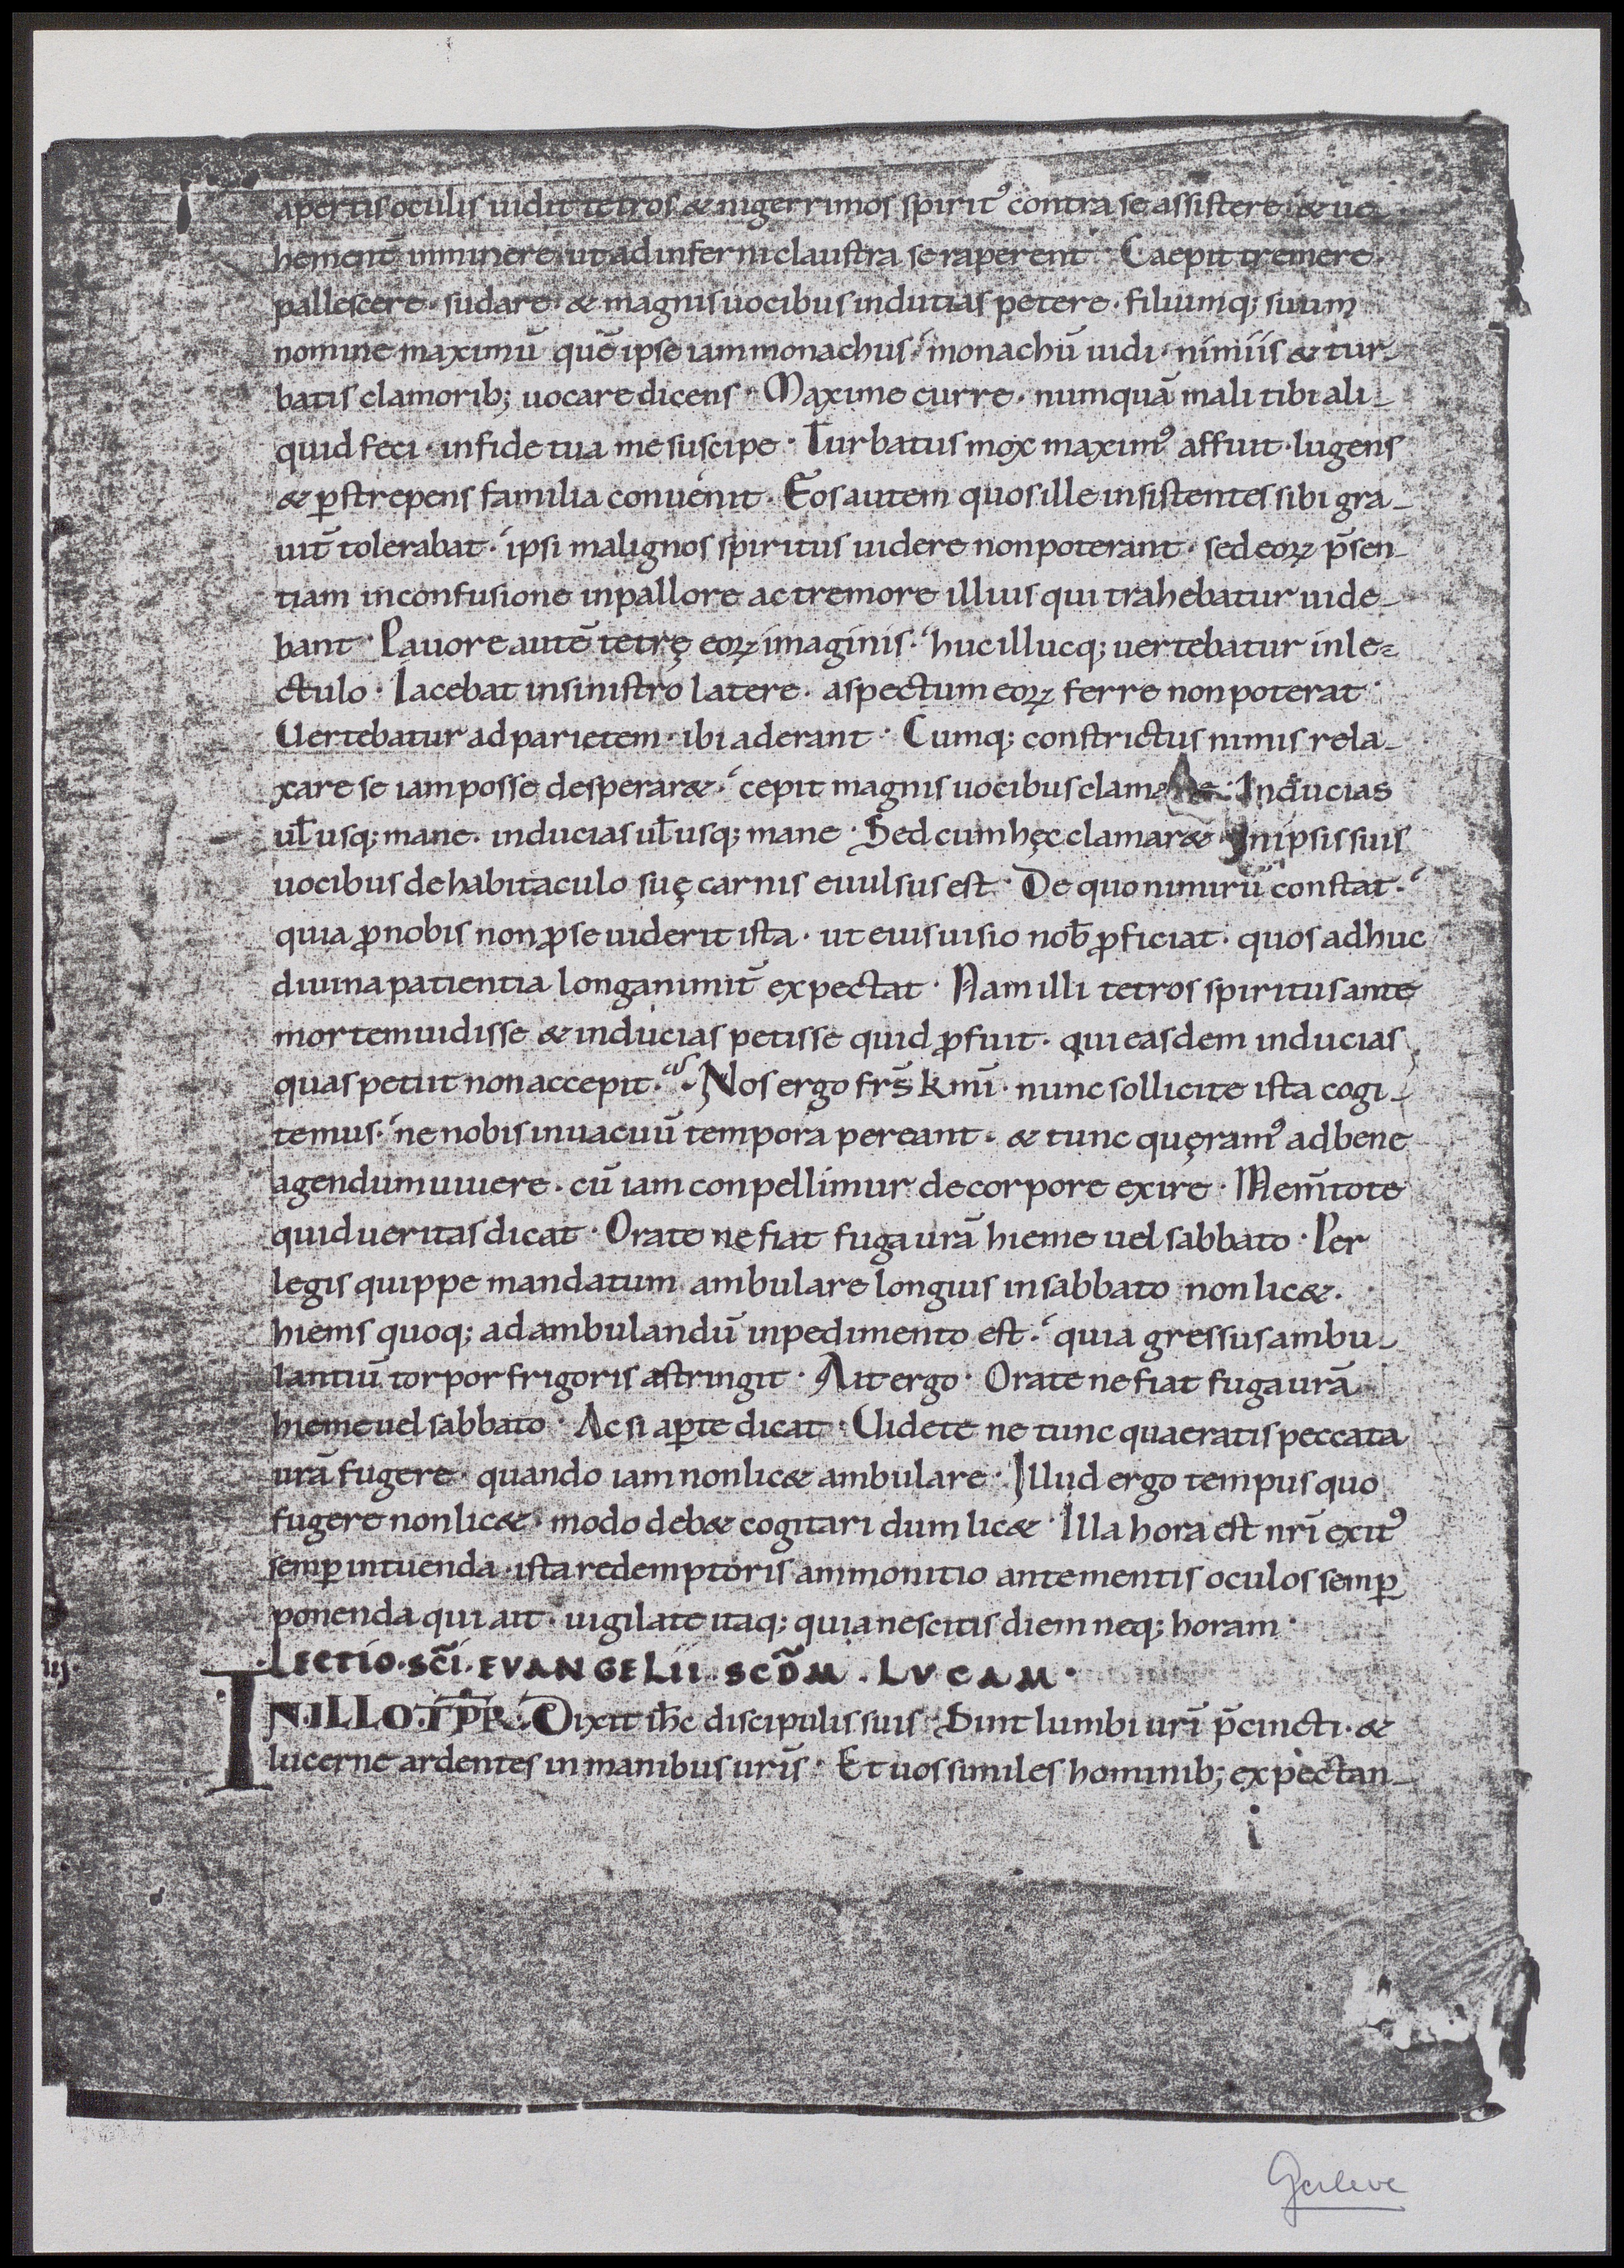 apertis oculis uidit tetros & nigerrimos spirit᾽ contra se assistere · & ue
hement̄ inminere ut ad inferni claustra se raperent · Caepit tremere ·
pallescere · sudare · & magnis uocibus indutias petere · filiumq; suum
nomine maximū quē ipse iam monachus · monachū uidi · nimiis & tur-
batis clamorib; uocare dicens · Maxime curre · numquā mali tibi ali-
quid feci · in fide tua me suscipe · Turbatus mox maxim᾽ affuit · lugens
& ꝑstrepens familia conuenit · Eos autem quos ille insistentes sibi gra-
uit̄ tolerabat · ipsi malignos spiritus uidere non poterant · sed eoꝝ p̄sen-
tiam in confusione in pallore ac tremore illius qui trahebatur uide-
bant · Pauore autē tetrę eoꝝ imaginis · huc illucq; uertebatur in le-
ctulo · Iacebat in sinistro latere · aspectum eoꝝ ferre non poterat ·
Uertebatur ad parietem · ibi aderant · Cumq; constrictus nimis rela-
xare se iam posse desperar& · cepit magnis uocibus clamare · Inducias
uł usq; mane · inducias uł usq; mane · Sed cum hęc clamar& · In ipsis suis
uocibus de habitaculo suę carnis euulsus est · De quo nimirū constat ·
quia ꝓ nobis non ꝓ se uiderit ista · ut eius uisio nob̄ ꝓficiat · quos adhuc
diuina patientia longanimit̄ expectat · Nam illi tetros spiritus ante
mortem uidisse & inducias petisse quid ꝓfuit · qui easdem inducias
quas petiit non accepit · Nos ergo fr̄s k mī · nunc sollicite ista cogi-
temus · ne nobis in uacuū tempora pereant · & tunc quęram᾽ ad bene
agendum uiuere · cū iam conpellimur de corpore exire · Mem̄tote
quid ueritas dicat · Orate ne fiat fuga ur̄a hieme uel sabbato · Per
legis quippe mandatum ambulare longius in sabbato non lic& ·
hiems quoq; ad ambulandū inpedimento est · quia gressus ambu-
lantiū torpor frigoris astringit · Ait ergo · Orate ne fiat fuga ur̄a
hieme uel sabbato · Ac si aꝑte dicat · Uidete ne tunc quaeratis peccata
ur̄a fugere · quando iam non lic& ambulare · Illud ergo tempus quo
fugere non lic& · modo deb& cogitari dum lic& · Illa hora est nr̄i exit᾽
semꝑ intuenda · ista redemptoris ammonitio ante mentis oculos semꝑ
ponenda qui ait · uigilate itaq; quia nescitis diem neq; horam ·
Lectio · SC̄I · EVANGELII · SCD̄M · LVCAM ·
IN · ILLO · T̄P̄R · Dixit ih̄c discipulis suis · Sint lumbi ur̄i p̄cincti · &
lucerne ardentes in manibus ur̄is · Et uos similes hominib; expectan-
i